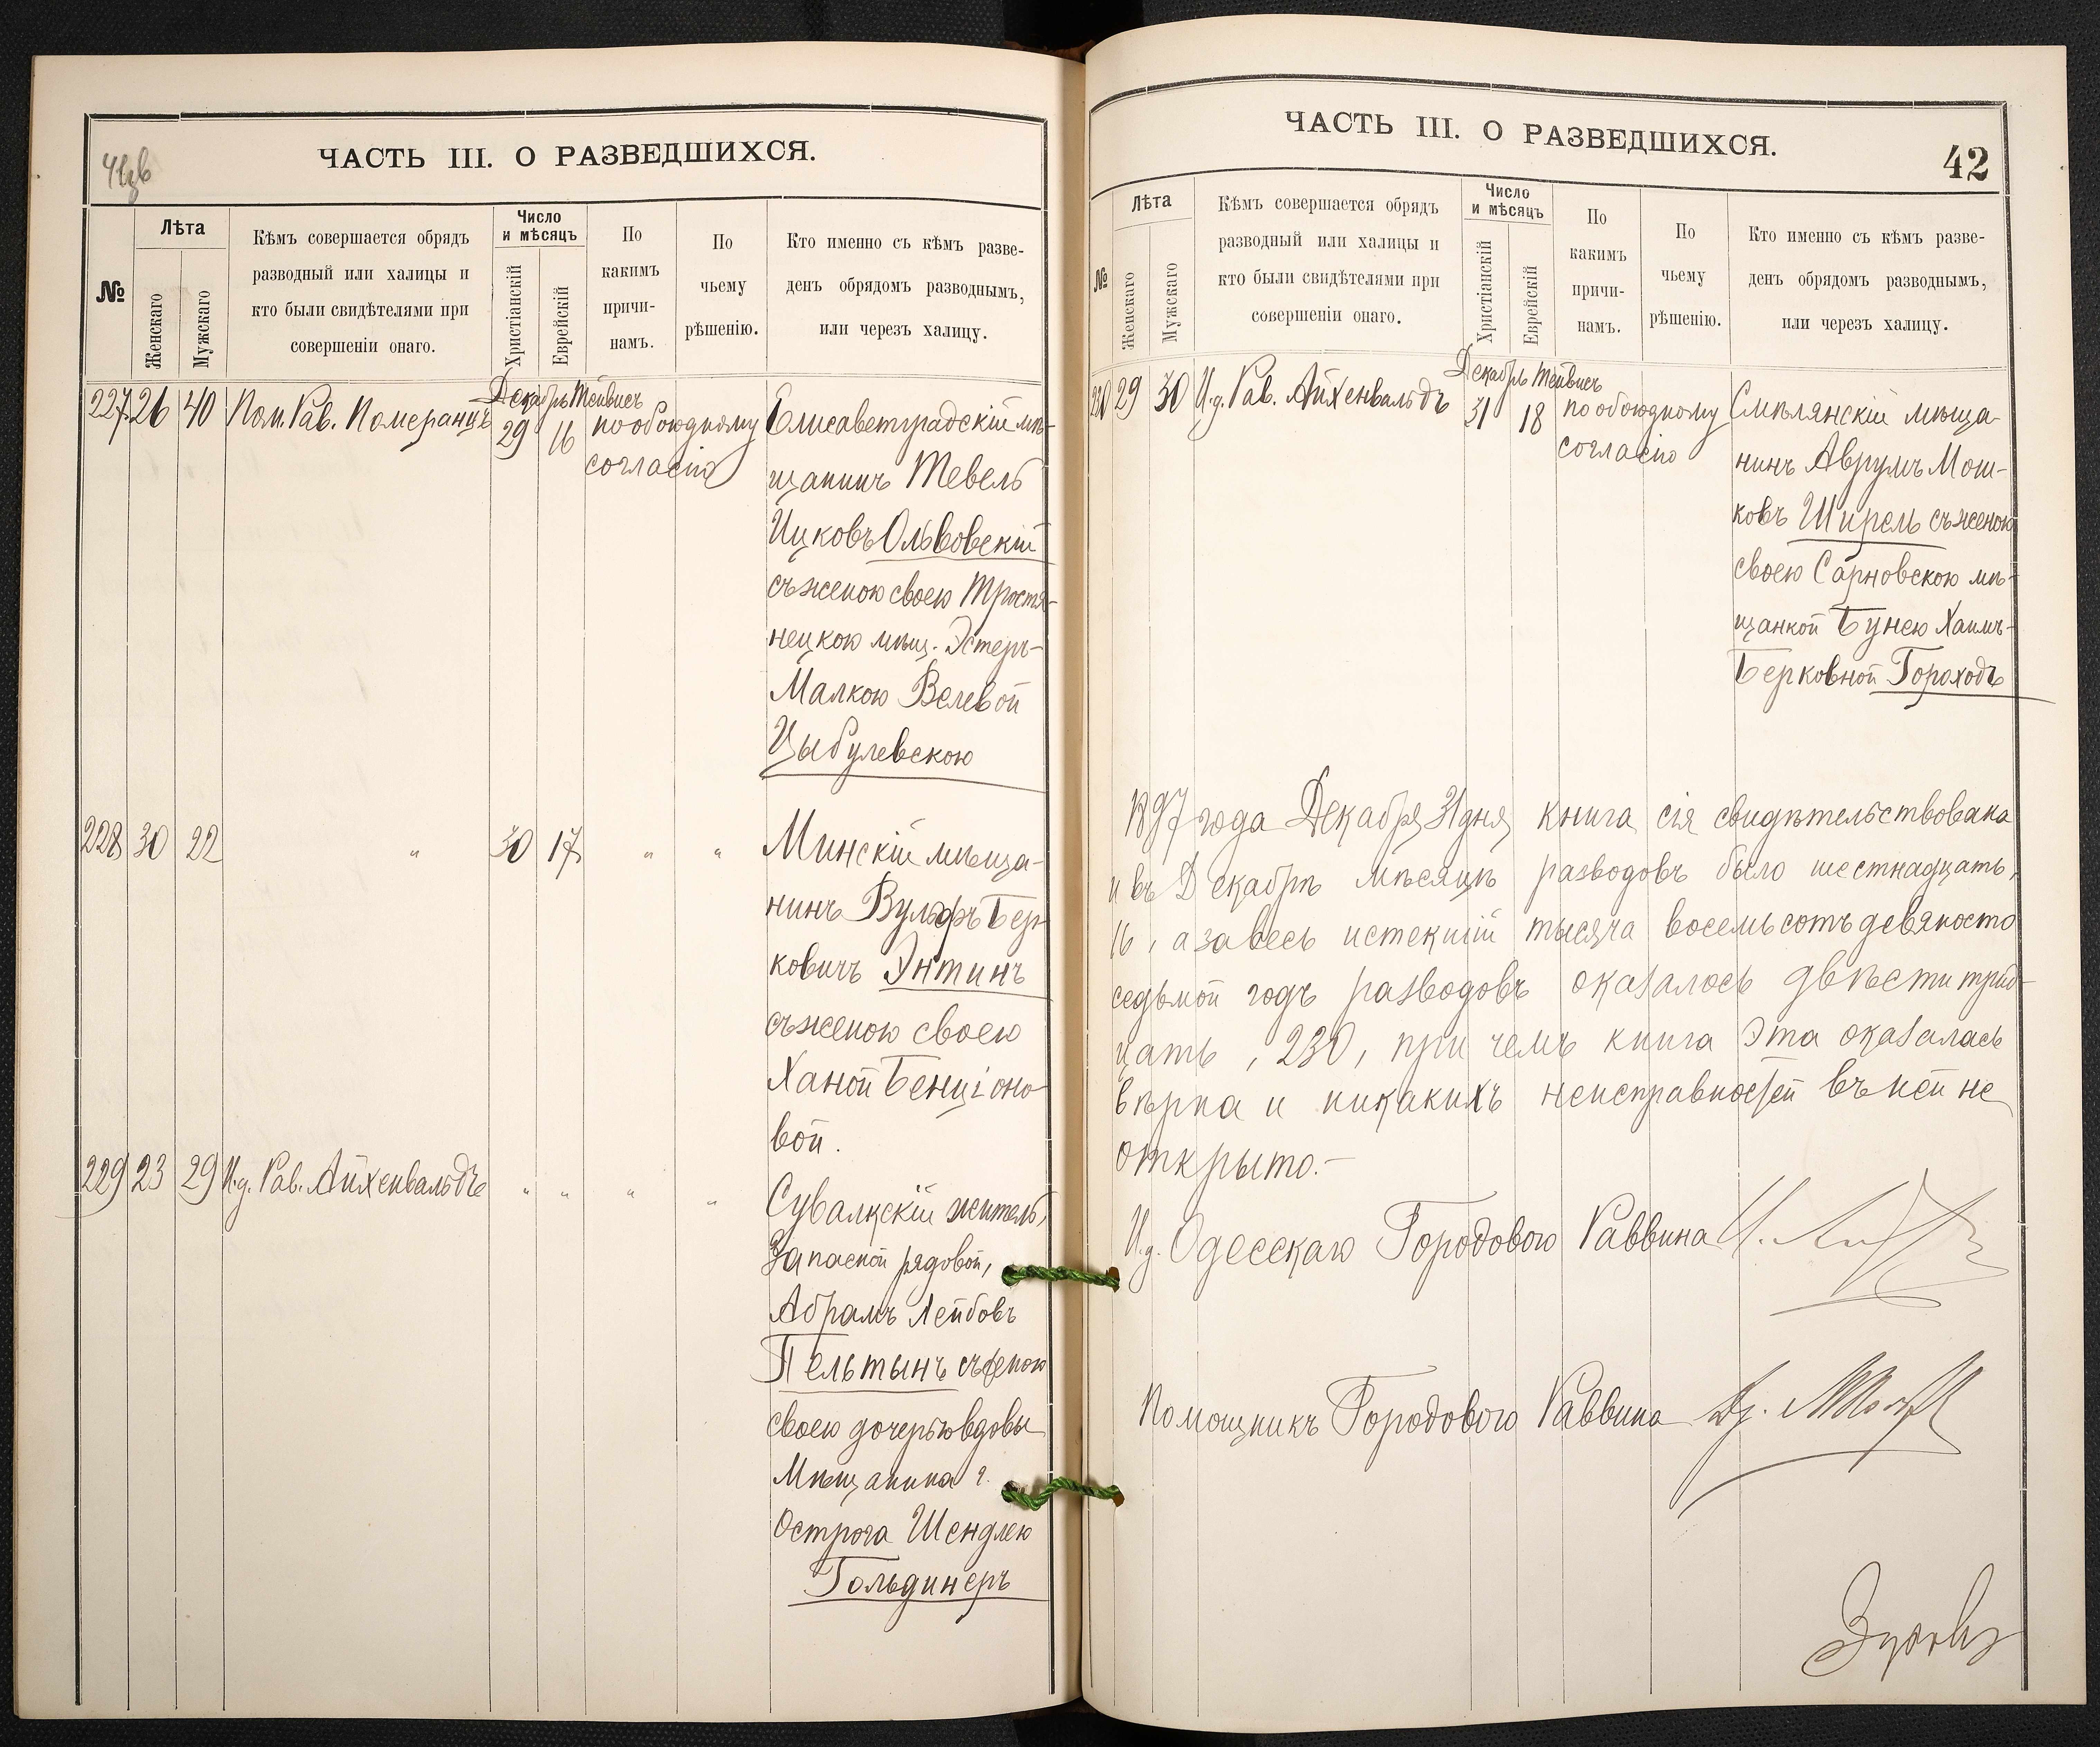 41об
ЧАСТЬ III. О РАЗВЕДШИХСЯ.
№
Лѣта
Женскаго
Мужскаго
Кѣмъ совершается обрядъ
разводный или халицы и
кто были свидѣтелями при
совершеніи онаго.
Число
и мѣсяцъ
Христіанскій
Еврейскій
По
какимъ
причи-
намъ.
По
чьему
рѣшенію.
Кто именно съ кѣмъ разве-
денъ обрядомъ разводнымъ,
или черезъ халицу.
Декабрь Тейвисъ
227 26 40 Пом. Рав. Померанцъ 29 16 по обоюдному
согласію
Елисаветградскій мѣ-
щанинъ Тевель
Ицковъ Ольвовскій
съ женою своею Тростя-
нецкою мѣщ. Эстеръ-
Малкою Велевой
Цыбулевскою
228 30 22 " 30 17 " "
Минскій мѣща-
нинъ Вульфъ Бер
ковичъ Энтинъ
съ женою своею
Ханой Бенціоно-
вой.
229 23 29 И.д. Рав. Айхенвальдъ " " " "
Сувалкскій житель,
Запасной рядовой,
Абрамъ Лейбовъ
Пельтынъ съ женою
своею дочерью вдовы
Мѣщанина г.
Острога Шендлею
Гольдинеръ
ЧАСТЬ III. О РАЗВЕДШИХСЯ.
42
№
Лѣта
Женскаго
Мужскаго
Кѣмъ совершается обрядъ
разводный или халицы и
кто были свидѣтелями при
совершеніи онаго.
Число
и мѣсяцъ
Христіанскій
Еврейскій
По
какимъ
причи-
намъ.
По
чьему
рѣшенію.
Кто именно съ кѣмъ разве-
денъ обрядомъ разводнымъ,
или черезъ халицу.
Декабрь Тейвисъ
230 29 30 И.д. Рав. Айхенвальдъ 31 18 по обоюдному
согласію
Смѣлянскій мѣща-
нинъ Аврумъ Мош-
ковъ Ширель съ женою
своею Сарновскою мѣ-
щанкой Бунею Хаимъ-
Берковной Гороходъ
1897 года Декабря 31 дня книга сія свидѣтельствована
и въ Декабрѣ мѣсяцѣ разводовъ было шестнадцать,
16, а за весь истекшій тысяча восемьсотъ девяносто
седьмой годъ разводовъ оказалось двѣсти трид-
цать, 230, при чемъ книга эта оказалась
вѣрна и никакихъ неисправностей въ ней не
открыто.-
И.д. Одесскаго Городового Раввина
Помощникъ Городового Раввина